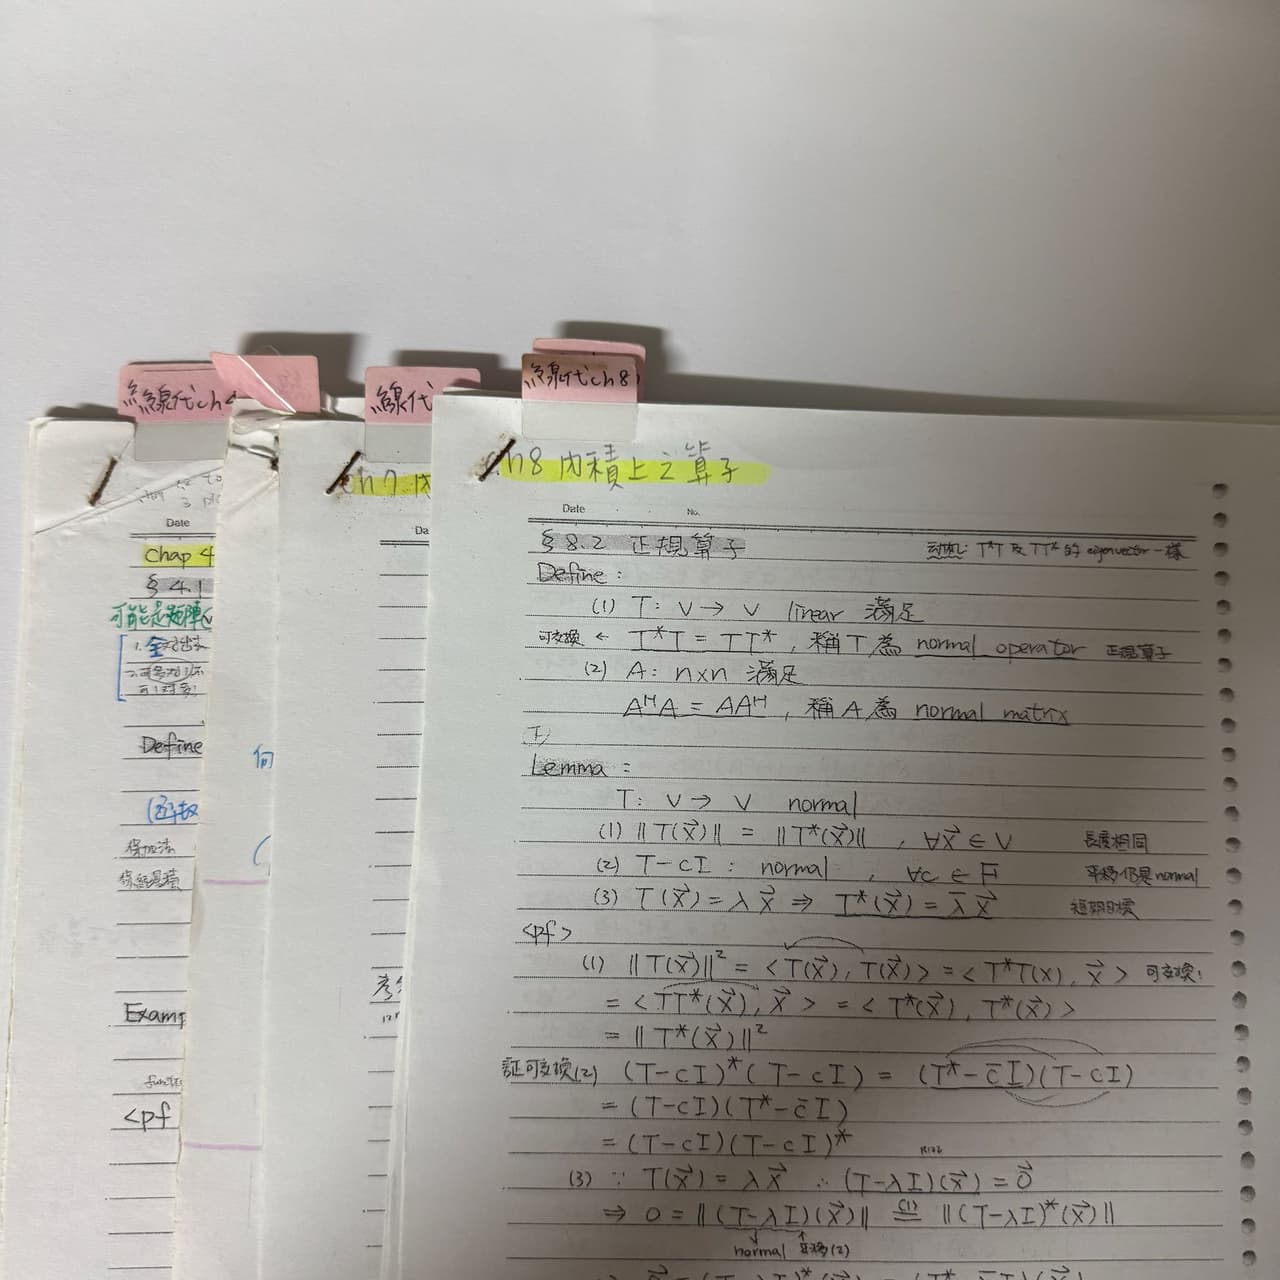 線代ch
線代
線代ch8
Date
Chap 4
§4.1
Define
Examp
<pf
ch7 內
Da
ch8 內積上之算子
Date No.
§8.2 正規算子
T*T 及 TT* 的 eigenvector 一樣
Define:
(1) T: V → V linear 滿足
可交換 ← T*T = TT*, 稱 T 為 normal operator 正規算子
(2) A: n×n 滿足
AᴴA = AAᴴ, 稱 A 為 normal matrix
Lemma:
T: V → V normal
(1) ||T(x⃗)|| = ||T*(x⃗)||, ∀x⃗ ∈ V 長度相同
(2) T-cI: normal, ∀c ∈ F 平移仍是normal
(3) T(x⃗) = λx⃗ ⇒ T*(x⃗) = λ̄x⃗
<pf>
(1) ||T(x⃗)||² = <T(x⃗), T(x⃗)> = <T*T(x), x⃗> 可交換!
= <TT*(x⃗), x⃗> = <T*(x⃗), T*(x⃗)>
= ||T*(x⃗)||²
証可交換(2) (T-cI)*(T-cI) = (T*-c̄I)(T-cI)
= (T-cI)(T*-c̄I)
= (T-cI)(T-cI)*
(3) ∵ T(x⃗) = λx⃗ ∴ (T-λI)(x⃗) = 0⃗
⇒ 0 = ||(T-λI)(x⃗)|| (1)= ||(T-λI)*(x⃗)||
normal 平移(2)